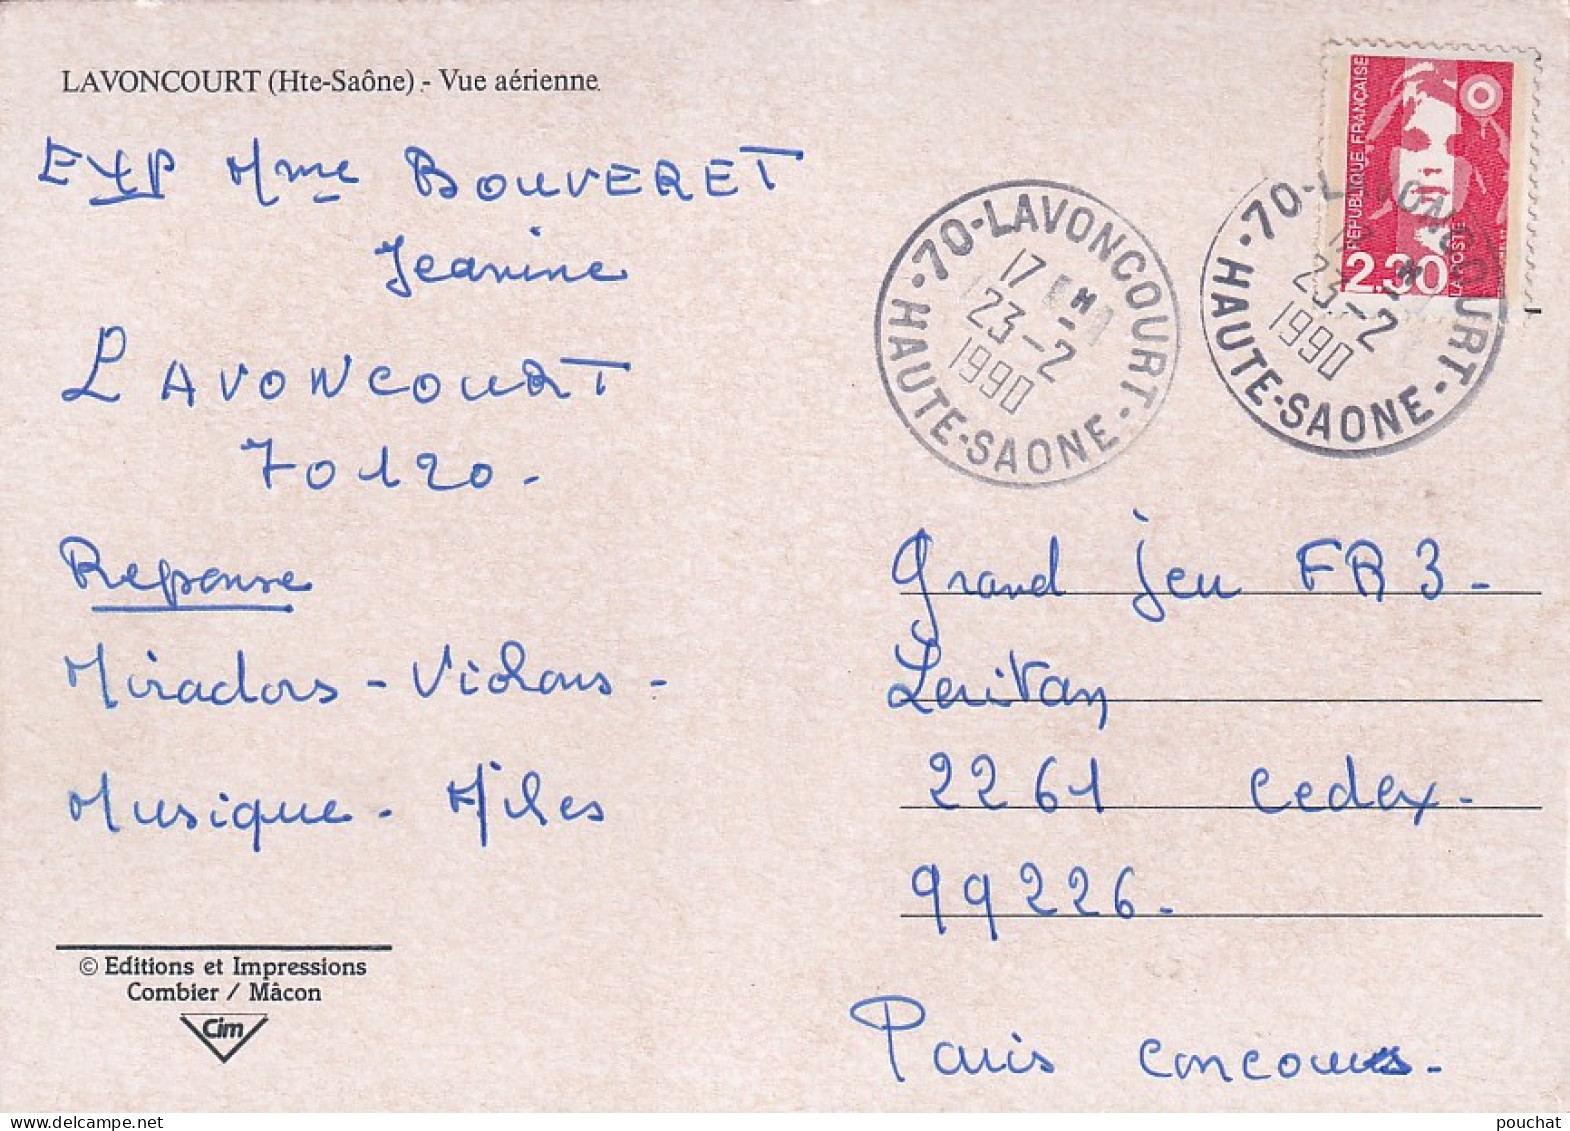 LAVONCOURT (Hte-Saône) - Vue aérienne
EXP Mme BOUVERET
Jeanine
LAVONCOURT
70120 -
Reponse
Miradors - Violons -
Musique - Miles
© Editions et Impressions
Combier / Mâcon
Cim
REPUBLIQUE FRANÇAISE
2,30
LA POSTE
70-LAVONCOURT
17 H
23-2
1990
HAUTE-SAONE
70-LAVONCOURT
17 H
23-2
1990
HAUTE-SAONE
Grand jeu FR3 -
Levitan
2261 Cedex -
99226 -
Paris concours -
pouchat